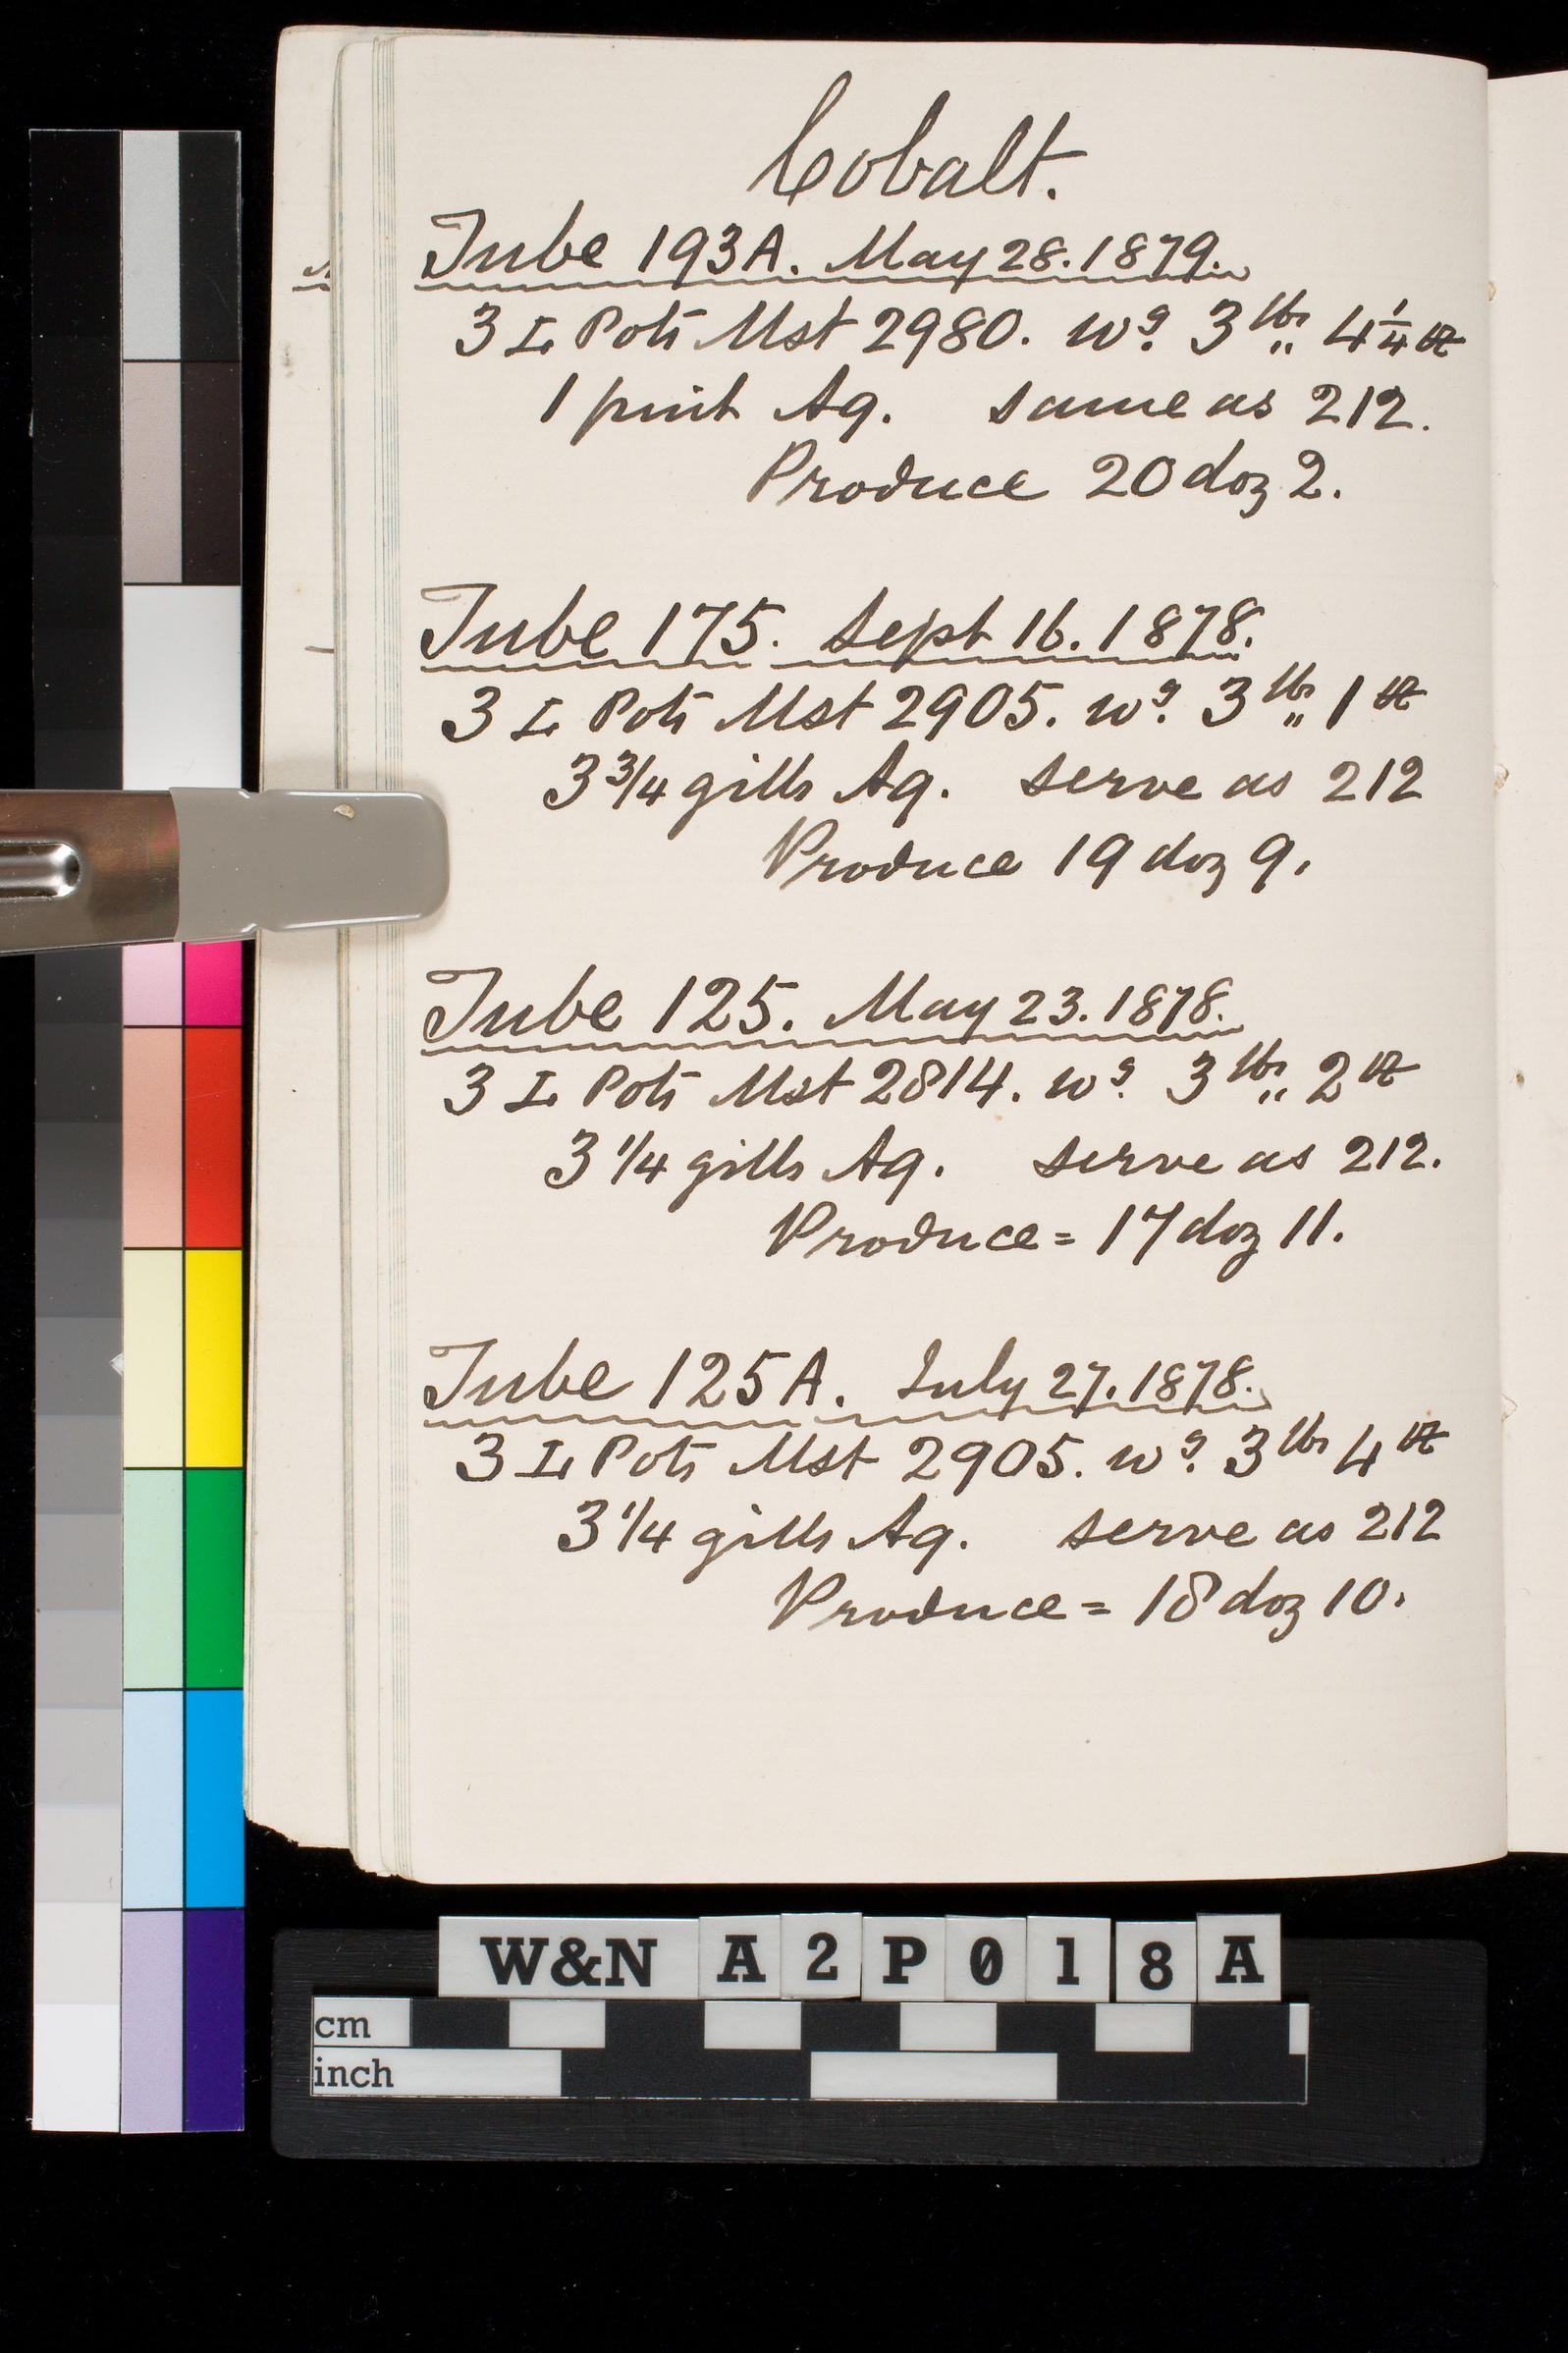 Cobalt.
Tube 193A. May 28. 1879.
3 I. Pots Mst 2980. wg. 3 lbs „ 4 1/4 oz
1 pint Aq. same as 212.
Produce 20 doz 2.
Tube 175. Sept 16. 1878.
3 I. Pots Mst 2905. wg. 3 lbs „ 1 oz
3 3/4 gills Aq. serve as 212
Produce 19 doz 9.
Tube 125. May 23. 1878.
3 I. Pots Mst 2814. wg. 3 lbs „ 2 oz
3 1/4 gills Aq. serve as 212.
Produce = 17 doz 11.
Tube 125A. July 27. 1878.
3 I. Pots Mst 2905. wg. 3 lbs 4 oz
3 1/4 gills Aq. serve as 212
Produce = 18 doz 10.
W&N A2P018A
cm
inch